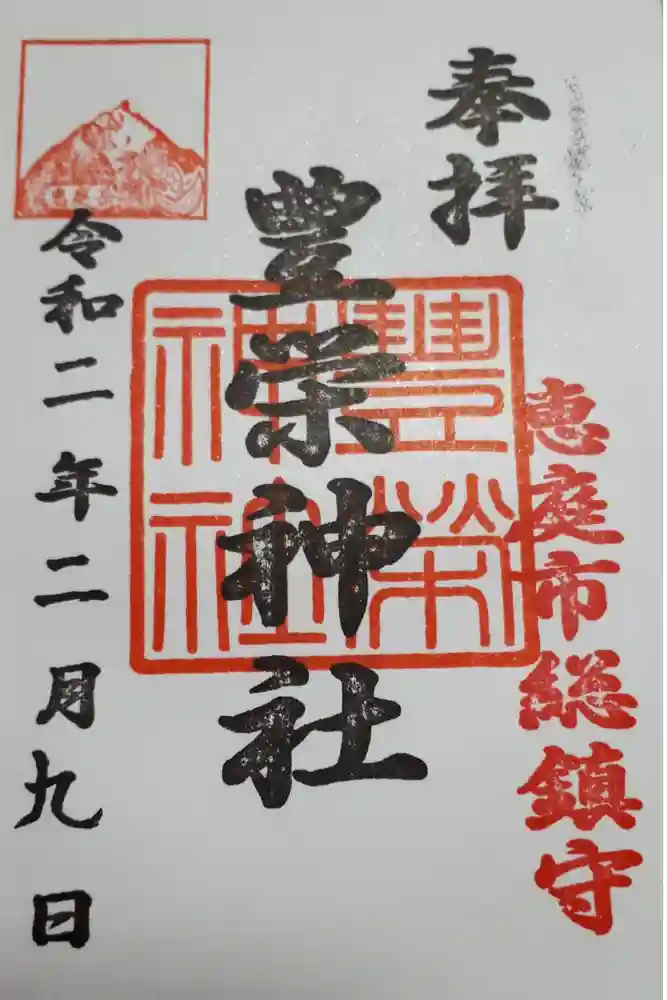 奉拝
恵庭市総鎮守
豊栄神社
豐榮神社
令和二年二月九日